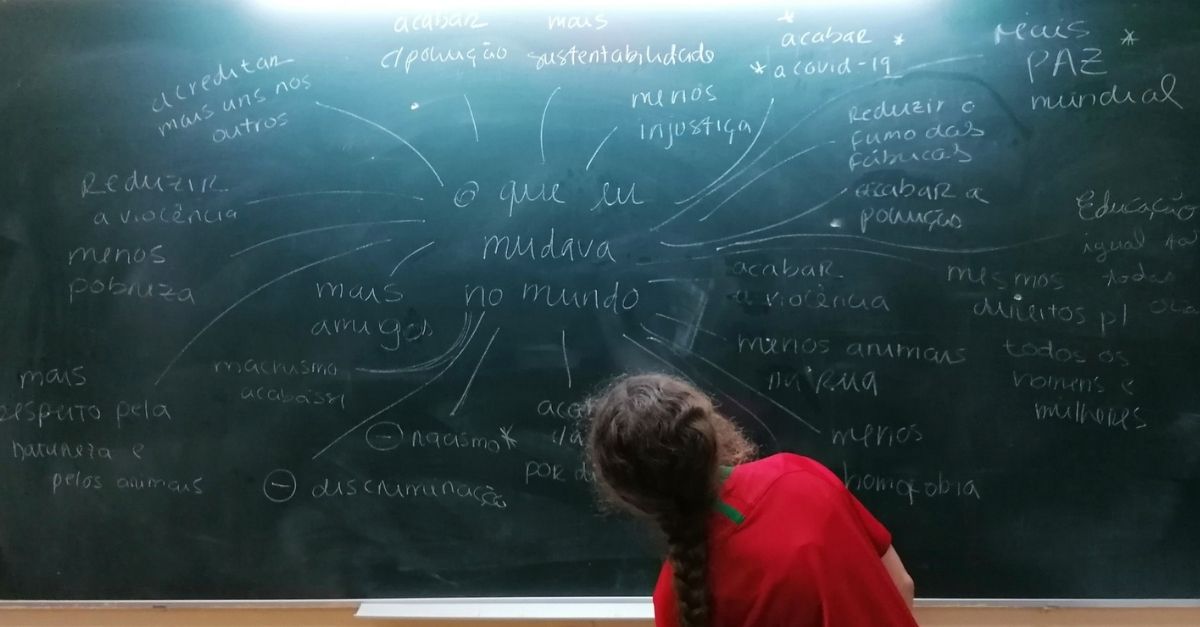 acabar
c/ poluição
mais
sustentabilidade
* acabar *
* a covid-19
mais
PAZ *
mundial
acreditar
mais uns nos
outros
menos
injustiça
Reduzir o
fumo das
fábricas
Reduzir
a violência
o que eu
mudava
no mundo
acabar a
poluição
Educação
igual
todas
menos
pobreza
mais
amigos
acabar
a violência
mesmos
direitos p/
todos os
homens e
mulheres
machismo
menos animais
na rua
mais
respeito pela
natureza e
pelos animais
⊖ racismo *
por
menos
homofobia
⊖ discriminação